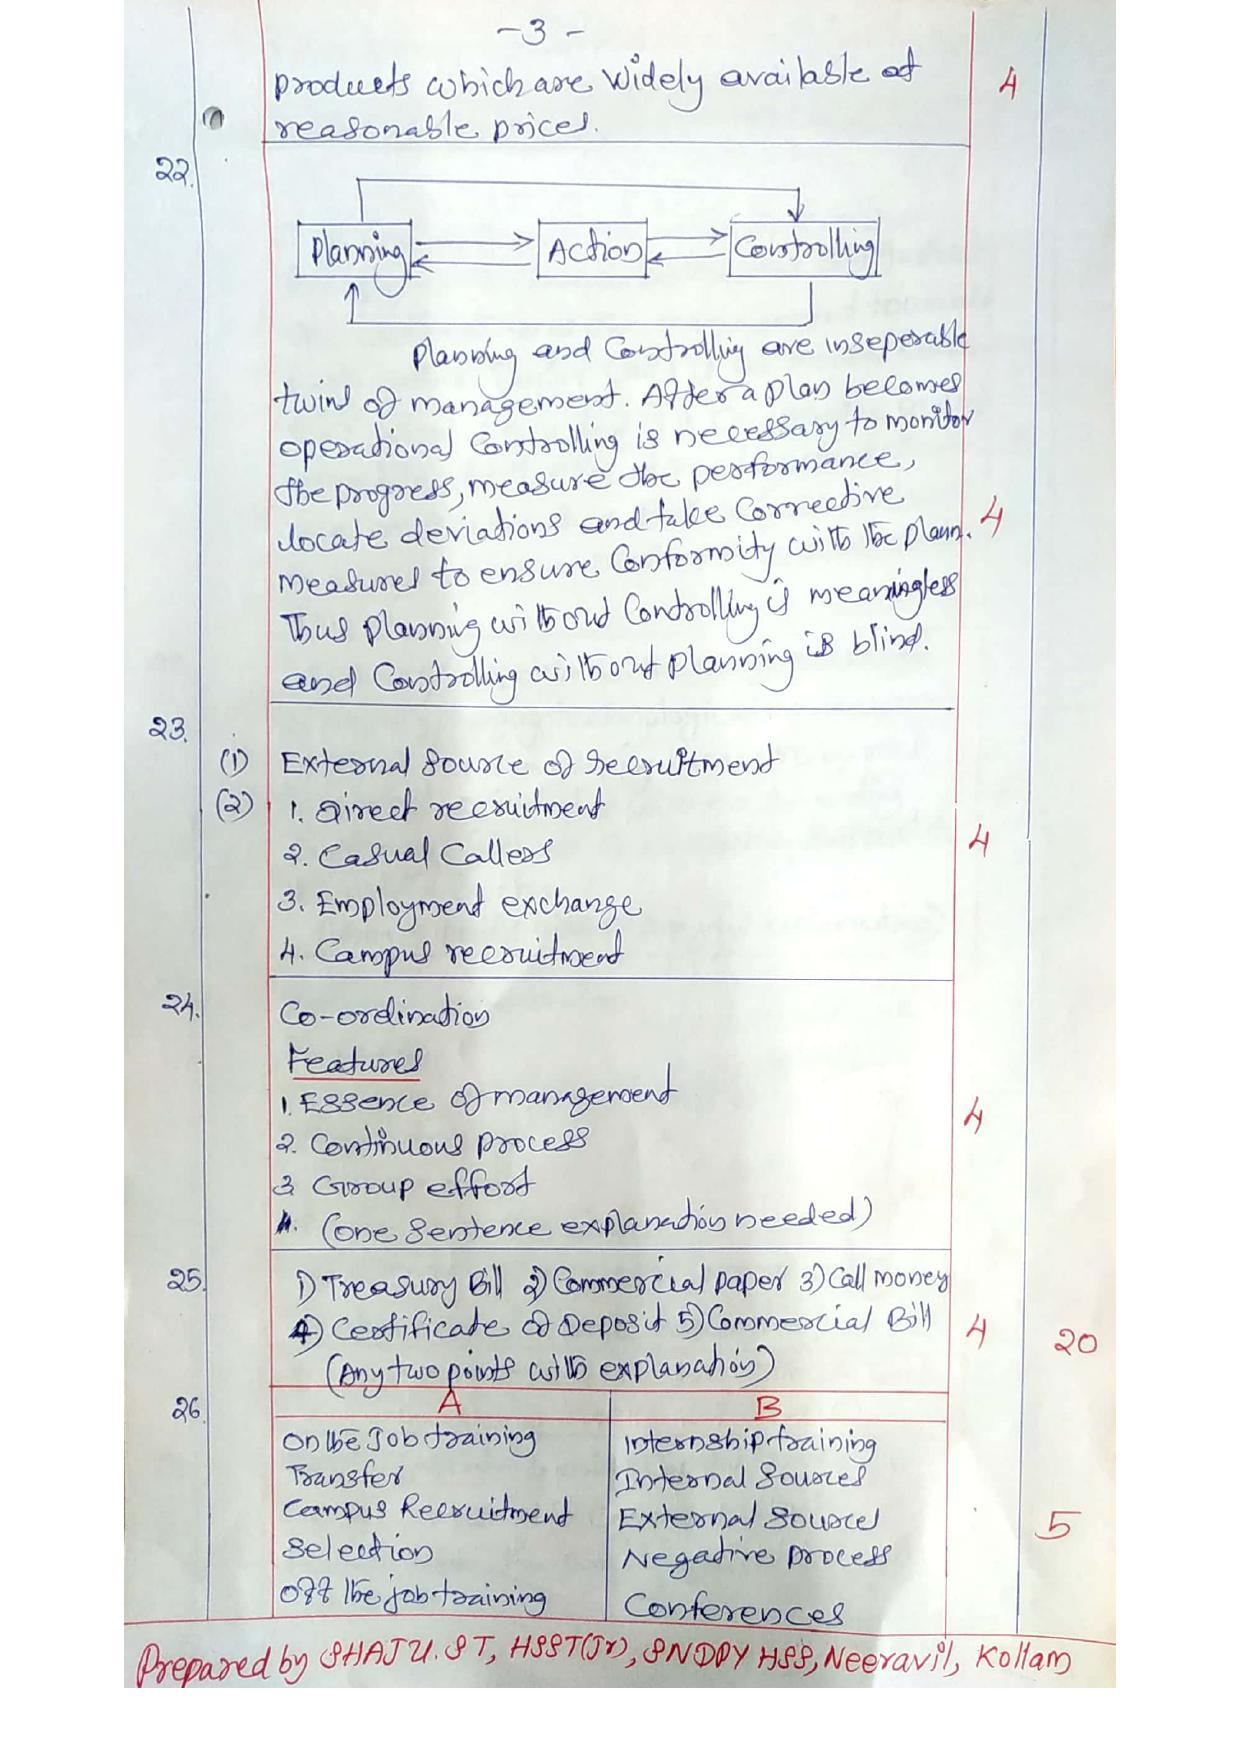 -3-
products which are widely available at 4
reasonable prices.
22.
Planning Action Controlling
Planning and Controlling are inseperable
twins of management. After a plan becomes
operational Controlling is necessary to monitor
the progress, measure the performance,
locate deviations and take Corrective 4
measures to ensure Conformity with the plann.
Thus planning without Controlling is meaningless
and Controlling without planning is blind.
23.
(1) External Source of recruitment
(2) 1. Direct recruitment
2. Casual Callers 4
3. Employment exchange
4. Campus recruitment
24. Co-ordination
Features
1. Essence of management
2. Continuous process 4
3 Group effort
4. (one sentence explanation needed)
25. 1) Treasury Bill 2) Commercial paper 3) Call money
4) Certificate of Deposit 5) Commercial Bill 4 20
(Any two points with explanation)
26. A B
On the Job training Internship training
Transfer Internal Sources
Campus Recruitment External Sources 5
Selection Negative process
Off the job training Conferences
Prepared by SHAJU. S T, HSST(Jr), SNDPY HSS, Neeravil, Kollam